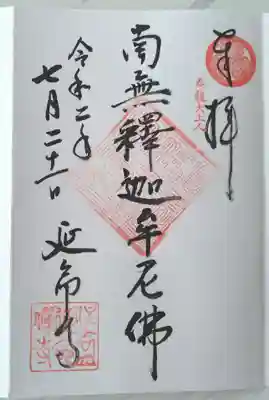 奉拝
南無釋迦牟尼佛
令和二年
七月二十一日
延命寺